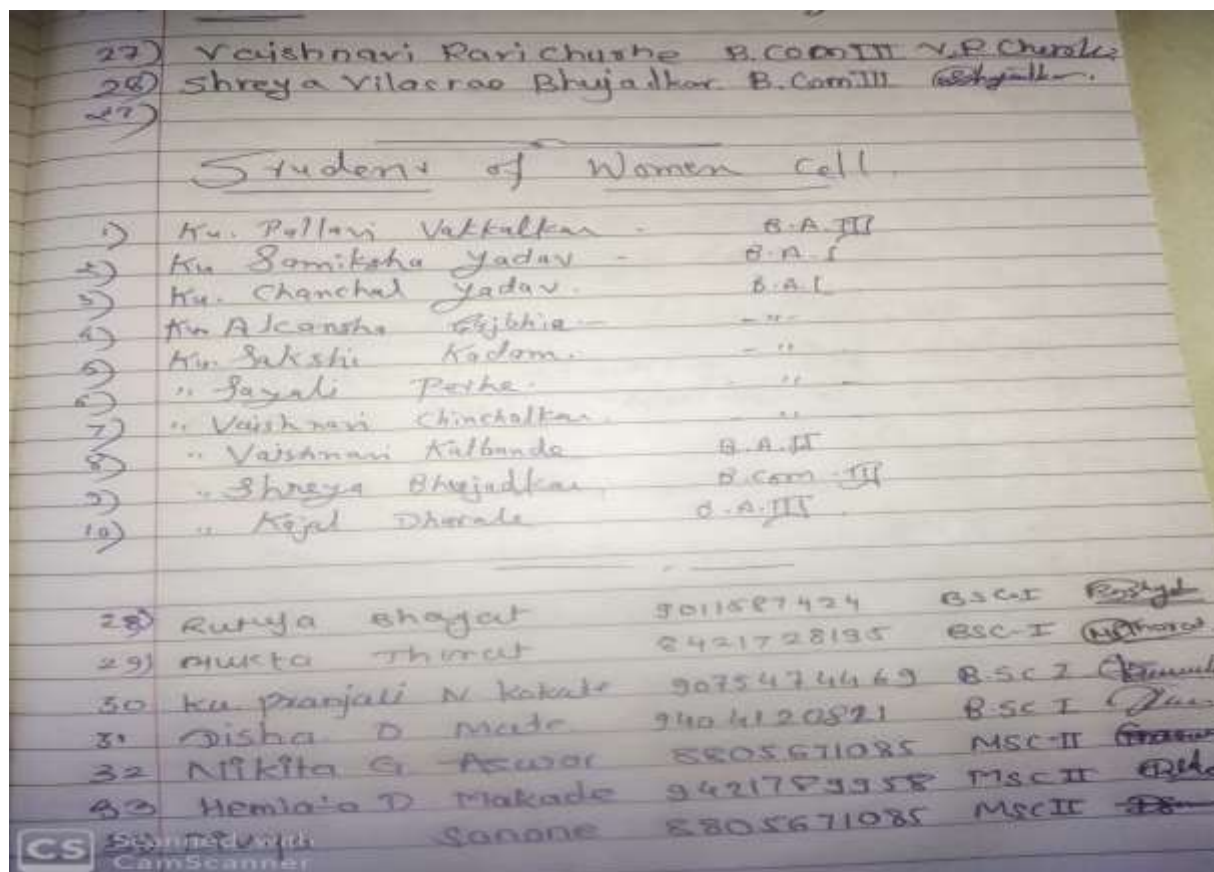 27) Vaishnavi Ravi Churhe B.Com III V.R. Churhe
28) Shreya Vilasrao Bhujadkar. B.Com III
27)
Students of Women Cell.
1) Ku. Pallavi Vakkalkar - B.A. III
2) Ku Samiksha Yadav - B.A. I
3) Ku. Chanchal Yadav. B.A. I
4) Ku Akansha - - " -
5) Ku. Sakshi Kadam. - "
6) " Sayali Pethe. - " -
7) " Vaishnavi Chinchalkar. "
8) " Vaishnavi Kalbande B.A. II
9) " Shreya Bhujadkar, B.Com - III
10) " Kajal Dhorale B.A. III
28) Rutuja Bhagat 9011587424 BSC-I
29) Mukta Thorat 8421728195 BSC-I
30 Ku Pranjali N Kakade 9075474469 B.SC I
31 Disha D Made 9404120821 B.SC I
32 Nikita G Aswar 8805671085 MSC-II
33 D Makade 9421789958 MSC II
Sanone 8805671085 MSC II
CS Scanned with
CamScanner